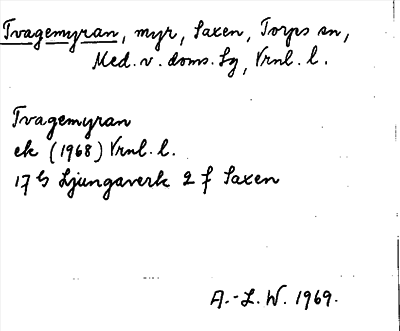 Tvagemyran, myr, Saxen, Torps sn,
Med. v. doms. Lg, Vrnl. l.
Tvagemyran
ek (1968) Vrnl. l.
17 G Ljungaverk 2 f Saxen
A.-L. W. 1969.